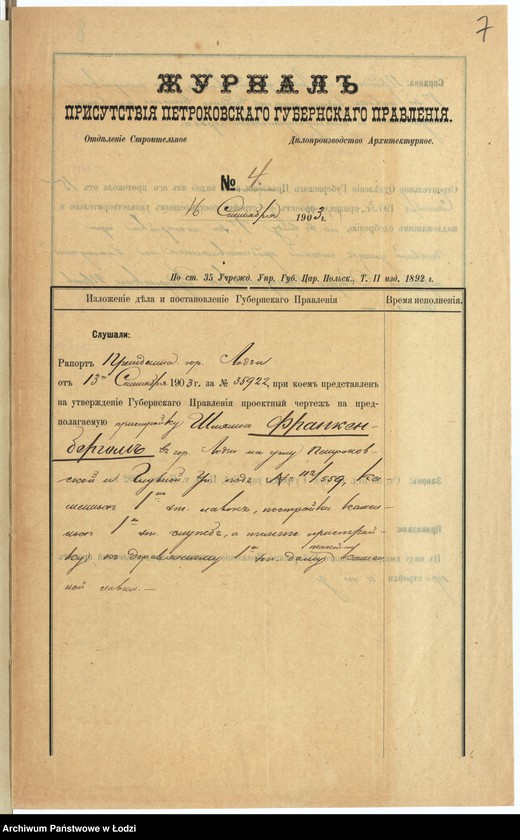 7
ЖУРНАЛЪ
ПРИСУТСТВІЯ ПЕТРОКОВСКАГО ГУБЕРНСКАГО ПРАВЛЕНІЯ.
Отдѣленіе Строительное Дѣлопроизводство Архитектурное.
№ 4.
16 Сентября 1903 г.
По ст. 35 Учрежд. Упр. Губ. Цар. Польск., Т. II изд. 1892 г.
Изложеніе дѣла и постановленіе Губернскаго Правленія Время исполненія.
Слушали:
Рапортъ Президента гор. Лодзи
отъ 13го Сентября 1903 г. за № 35922 при коемъ представленъ
на утвержденіе Губернскаго Правленія проектный чертежъ на пред-
полагаемую пристройку Шлямою Франкен-
бергомъ въ гор. Лодзи на углу Петроков-
ской и Глувной ул. подъ № 112/559, ка-
менныхъ 1но эт. лавокъ, постройки камен-
ныхъ 1но эт. службъ, а также пристрой-
ку къ деревянному 1но эт. дому камен-
ной лавки. —
Archiwum Państwowe w Łodzi